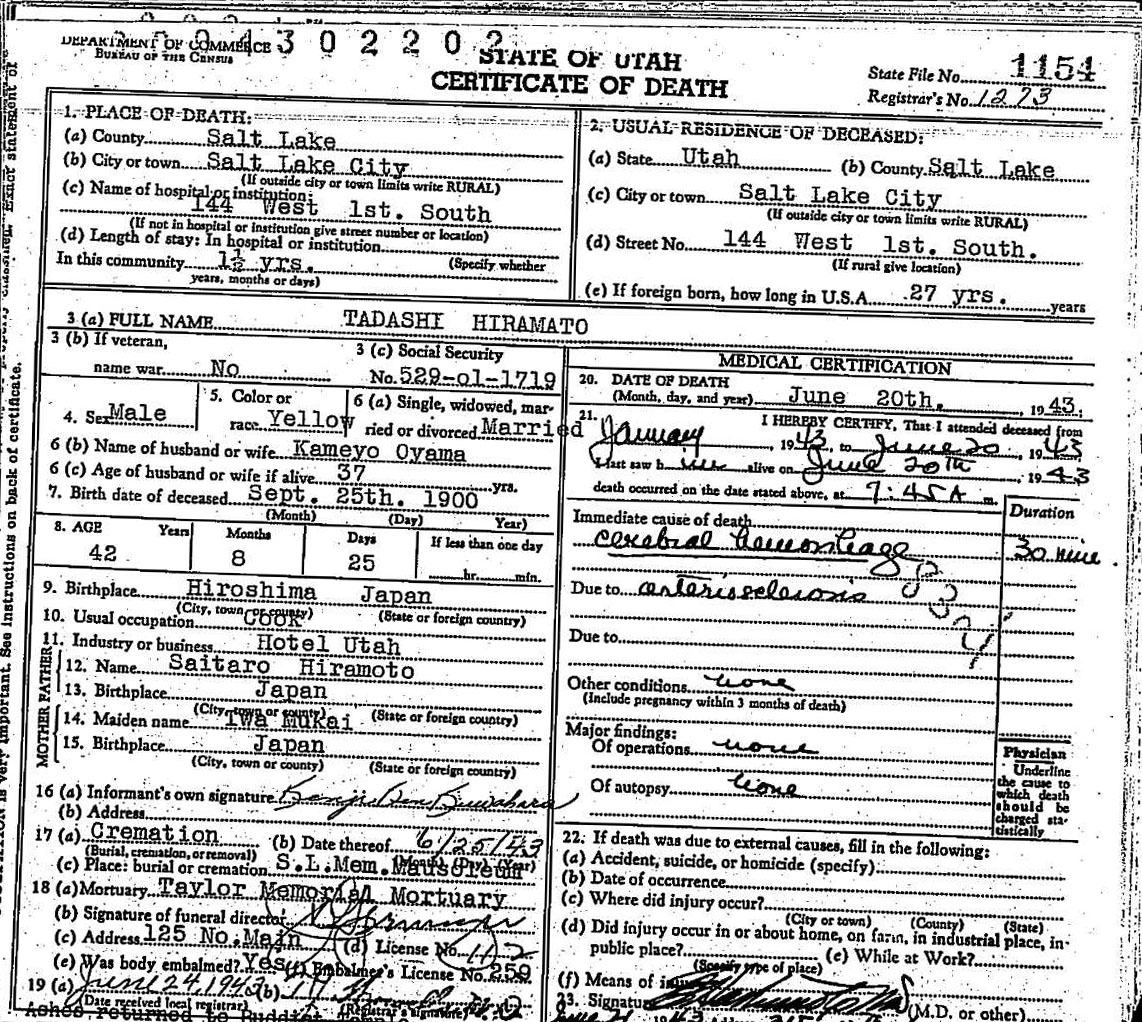 004302202
DEPARTMENT OF COMMERCE
BUREAU OF THE CENSUS
STATE OF UTAH
CERTIFICATE OF DEATH
State File No. 1154
Registrar's No. 1273
1. PLACE OF DEATH:
(a) County Salt Lake
(b) City or town Salt Lake City
(If outside city or town limits write RURAL)
(c) Name of hospital or institution:
144 West 1st. South
(If not in hospital or institution give street number or location)
(d) Length of stay: In hospital or institution
In this community 1½ yrs. (Specify whether
years, months or days)
2. USUAL RESIDENCE OF DECEASED:
(a) State Utah (b) County Salt Lake
(c) City or town Salt Lake City
(If outside city or town limits write RURAL)
(d) Street No. 144 West 1st. South.
(If rural give location)
(e) If foreign born, how long in U.S.A. 27 yrs. years
3 (a) FULL NAME TADASHI HIRAMATO
3 (b) If veteran,
name war No
3 (c) Social Security
No. 529-01-1719
4. Sex Male
5. Color or
race Yellow
6 (a) Single, widowed, mar-
ried or divorced Married
6 (b) Name of husband or wife Kameyo Oyama
6 (c) Age of husband or wife if alive 37 yrs.
7. Birth date of deceased Sept. 25th. 1900
(Month) (Day) Year)
8. AGE Years Months Days If less than one day
42 8 25 hr. min.
9. Birthplace Hiroshima Japan
(City, town or county) (State or foreign country)
10. Usual occupation Cook
11. Industry or business Hotel Utah
FATHER
12. Name Saitaro Hiramoto
13. Birthplace Japan
(City, town or county) (State or foreign country)
MOTHER
14. Maiden name Iwa Mukai
15. Birthplace Japan
(City, town or county) (State or foreign country)
16 (a) Informant's own signature
(b) Address
17 (a) Cremation (b) Date thereof 6/25/43
(Burial, cremation, or removal) (Month) (Day) (Year)
(c) Place: burial or cremation S.L.Mem.Mausoleum
18 (a) Mortuary Taylor Memorial Mortuary
(b) Signature of funeral director
(c) Address 125 No.Main (d) License No. 112
(e) Was body embalmed? Yes (f) Embalmer's License No. 259
19 (a) June 24 1943 (b)
(Date received local registrar) (Registrar's signature)
Ashes returned to Buddist
MEDICAL CERTIFICATION
20. DATE OF DEATH
(Month, day, and year) June 20th. , 19 43;
21. I HEREBY CERTIFY, That I attended deceased from
January 1943, to June 20, 1943
I last saw h im alive on June 20th, 1943
death occurred on the date stated above, at 7:45 A m.
Duration
Immediate cause of death
cerebral hemorrhage 30 min.
Due to arteriosclerosis
Due to
Other conditions none
(Include pregnancy within 3 months of death)
Major findings:
Of operations none
Of autopsy none
Physician
Underline
the cause to
which death
should be
charged sta-
tistically
22. If death was due to external causes, fill in the following:
(a) Accident, suicide, or homicide (specify)
(b) Date of occurrence
(c) Where did injury occur?
(City or town) (County) (State)
(d) Did injury occur in or about home, on farm, in industrial place, in-
public place? (e) While at Work?
(Specify type of place)
(f) Means of injury
23. Signature (M.D. or other)
very important. See instructions on back of certificate.
Exact statement of